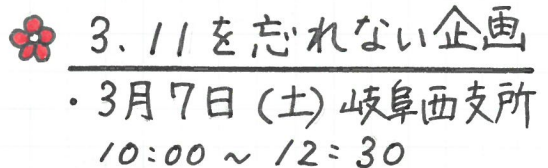 3.11を忘れない企画
・3月7日(土)岐阜西支所
10:00〜12:30